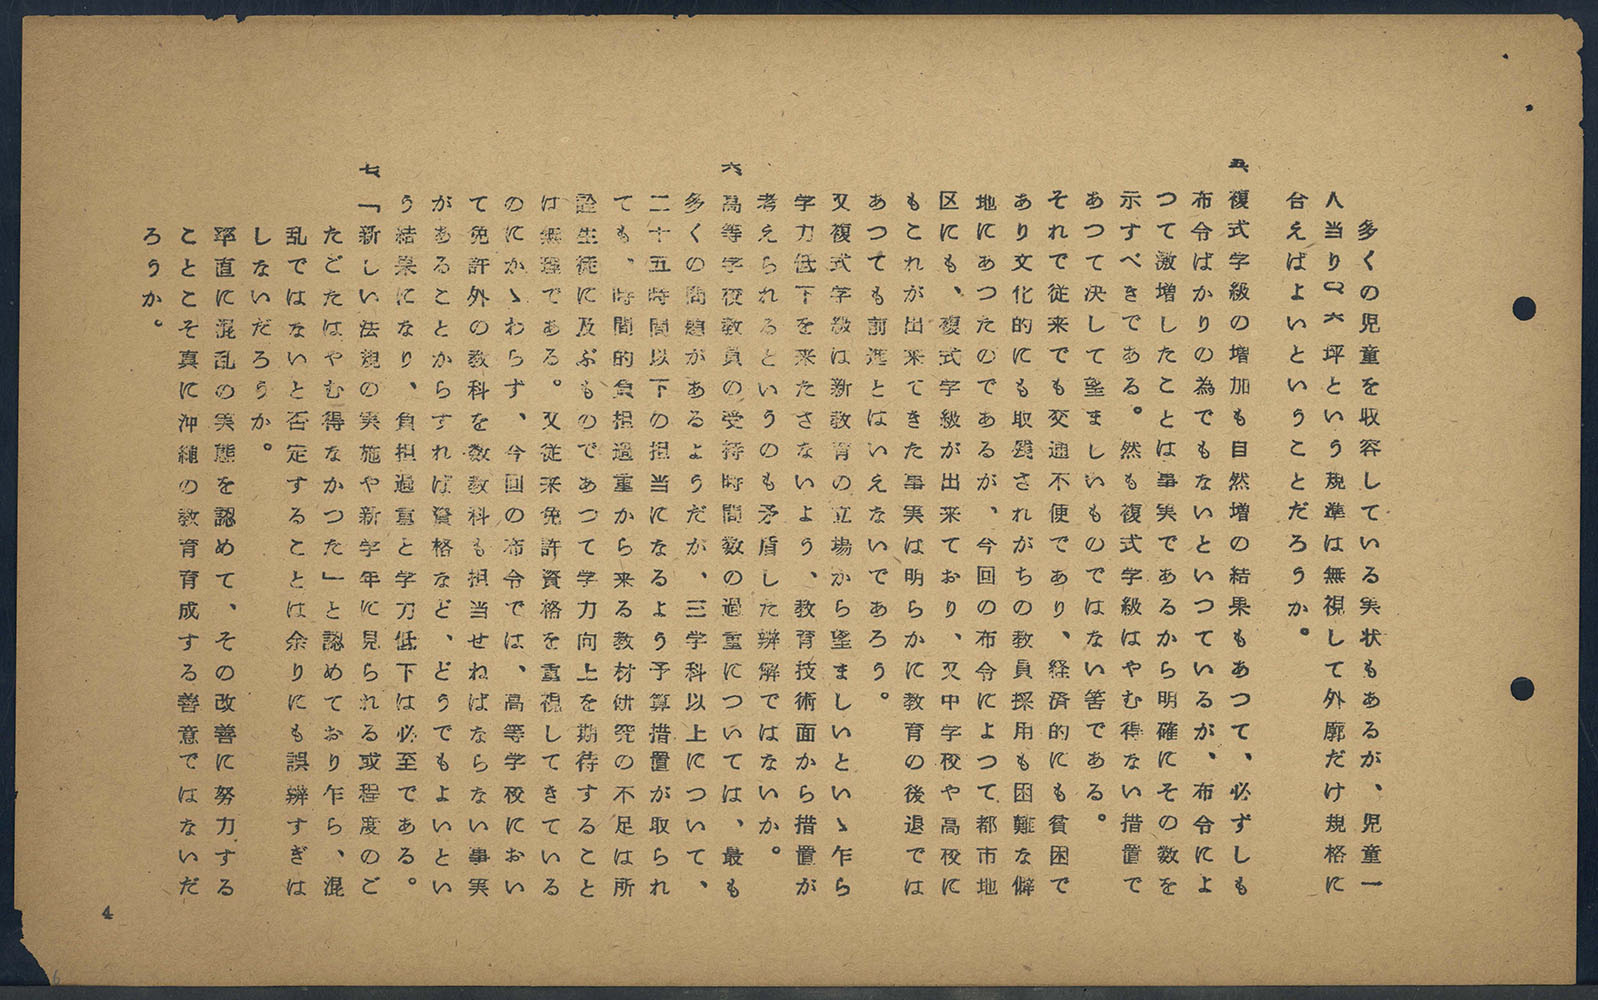 多くの児童を収容している実状もあるが、児童一
人当り〇・六坪という規準は無視して外廓だけ規格に
合えばよいということだろうか。
五、複式学級の増加も自然増の結果もあつて、必ずしも
布令ばかりの為でもないといつているが、布令によ
つて激増したことは事実であるから明確にその数を
示すべきである。然も複式学級はやむ得ない措置で
あつて決して望ましいものではない筈である。
それで従来でも交通不便であり、経済的にも貧困で
あり文化的にも取残されがちの教員採用も困難な僻
地にあつたのであるが、今回の布令によつて都市地
区にも、複式学級が出来ており、又中学校や高校に
もこれが出来てきた事実は明らかに教育の後退では
あつても前進とはいえないであろう。
又複式学級は新教育の立場から望ましいといゝ乍ら
学力低下を来たさないよう、教育技術面から措置が
考えられるというのも矛盾した辨解ではないか。
六、高等学校教員の受持時間数の過重については、最も
多くの問題があるようだが、三学科以上について、
二十五時間以下の担当になるよう予算措置が取られ
ても、時間的負担過重から来る教材研究の不足は所
詮生徒に及ぶものであつて学力向上を期待すること
は無理である。又従来免許資格を重視してきている
のにかゝわらず、今回の布令では、高等学校におい
て免許外の教科を数教科も担当せねばならない事実
があることからすれば資格など、どうでもよいとい
う結果になり、負担過重と学力低下は必至である。
七、「新しい法規の実施や新学年に見られる或程度のご
たごたはやむ得なかつた」と認めており乍ら、混
乱ではないと否定することは余りにも誤辨すぎは
しないだろうか。
率直に混乱の実態を認めて、その改善に努力する
ことこそ真に沖縄の教育育成する善意ではないだ
ろうか。
4